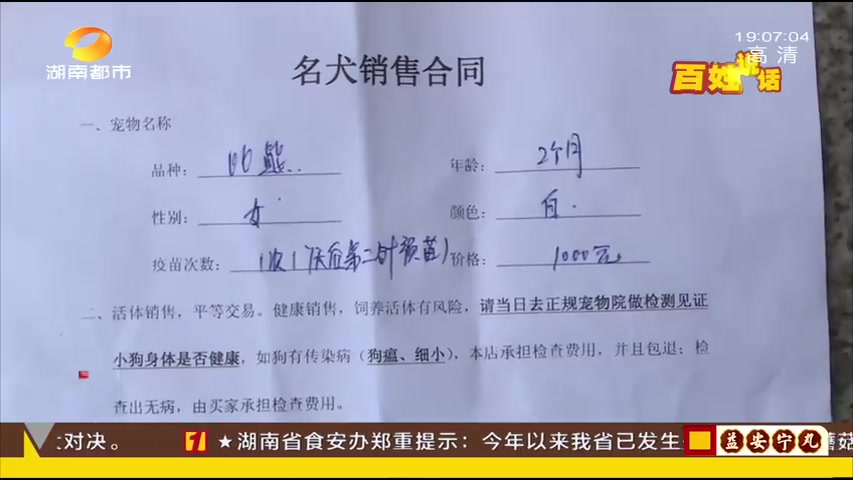 19:07:04
高清
湖南都市
百姓说话
名犬销售合同
一、宠物名称
品种: 比熊 年龄: 2个月
性别: 女 颜色: 白
疫苗次数: 1次(7天后第二针预苗) 价格: 1000元
二、活体销售,平等交易。健康销售,饲养活体有风险,请当日去正规宠物院做检测见证
小狗身体是否健康,如狗有传染病(狗瘟、细小),本店承担检查费用,并且包退;检
查出无病,由买家承担检查费用。
大对决。 ★湖南省食安办郑重提示:今年以来我省已发生 益安宁丸 蘑菇